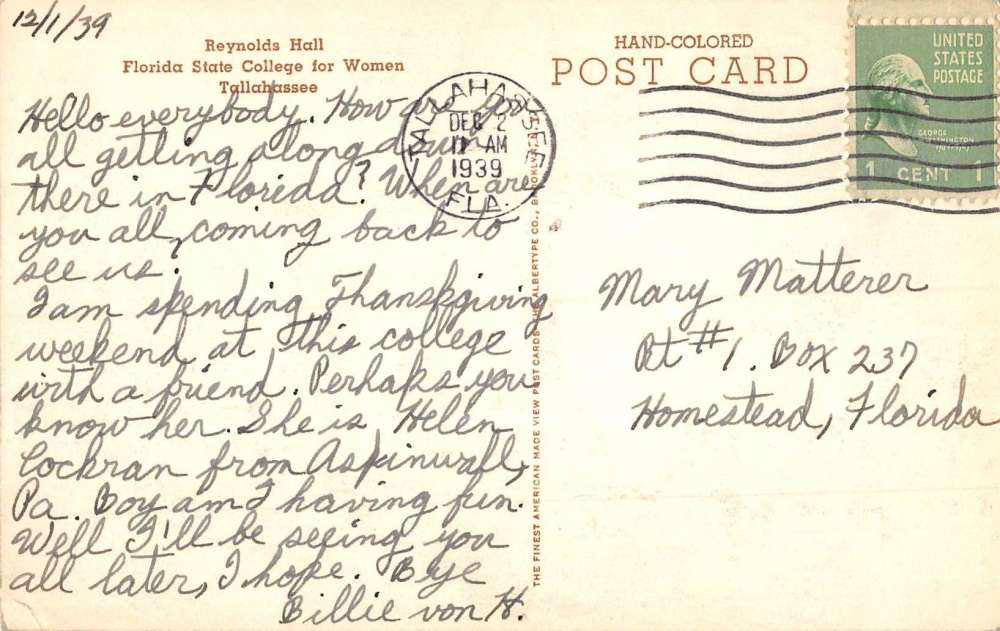 12/1/39
Reynolds Hall
Florida State College for Women
Tallahassee
Hello everybody. How are you
all getting along down
there in Florida? When are
you all, coming back to
see us?
I am spending Thanskgiving
weekend at this college
with a friend. Perhaps you
know her. She is Helen
Cockran from Aspinwall,
Pa. Boy am I having fun.
Well I'll be seeing you
all later, I hope. Bye
Billie von H.
THE FINEST AMERICAN MADE VIEW POST CARDS THE ALBERTYPE CO., BROOKLYN, N.Y.
HAND-COLORED
POST CARD
TALLAHASSEE
DEC 2
11 AM
1939
FLA.
UNITED
STATES
POSTAGE
GEORGE
WASHINGTON
1 CENT 1
Mary Matterer
Rt #1. Box 237
Homestead, Florida